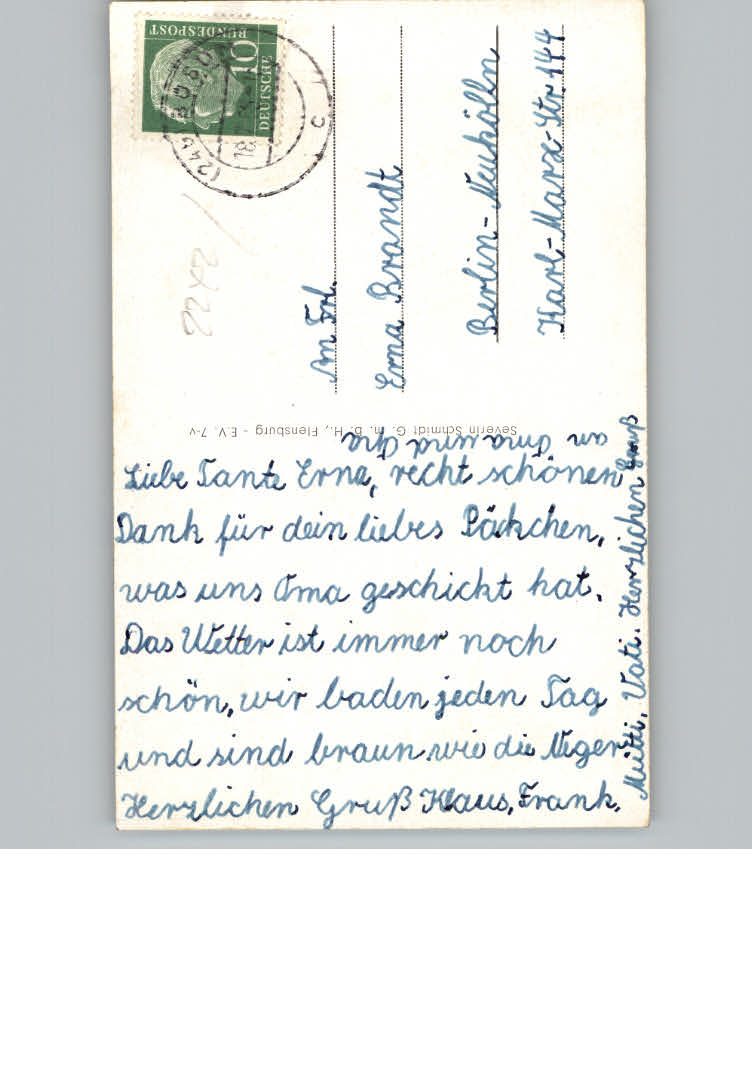 Liebe Tante Erna, recht schönen
Dank für dein liebes Päckchen,
was uns Oma geschickt hat.
Das Wetter ist immer noch
schön, wir baden jeden Tag
und sind braun wie die Neger.
Herzlichen Gruß Klaus, Frank,
Mutti, Vati. Herzlichen Gruß
an Oma und Opa
Severin Schmidt G. m. b. H., Flensburg - E.V. 7-v
An Frl.
Erna Brandt
Berlin-Neukölln
Karl-Marx-Str. 144
DEUTSCHE
BUNDESPOST
10
(24b)
c